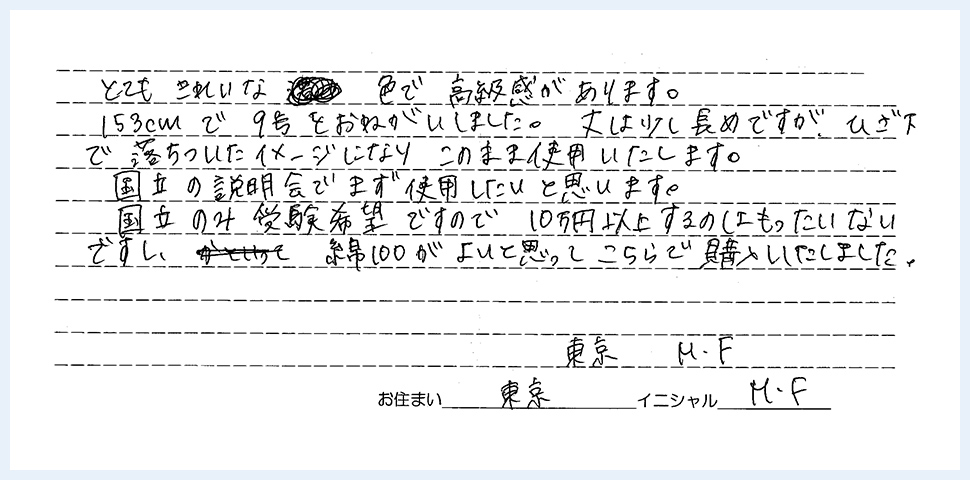 とても きれいな 色で 高級感があります。
153cmで 9号をおねがいしました。 丈は少し長めですが、ひざ下
で 落ちついたイメージになり このまま使用いたします。
国立の説明会でまず使用したいと思います。
国立のみ受験希望ですので 10万円以上するのはもったいない
ですし、 かといって 綿100がよいと思って こちらで購入いたしました。
東京 M・F
お住まい 東京 イニシャル M・F